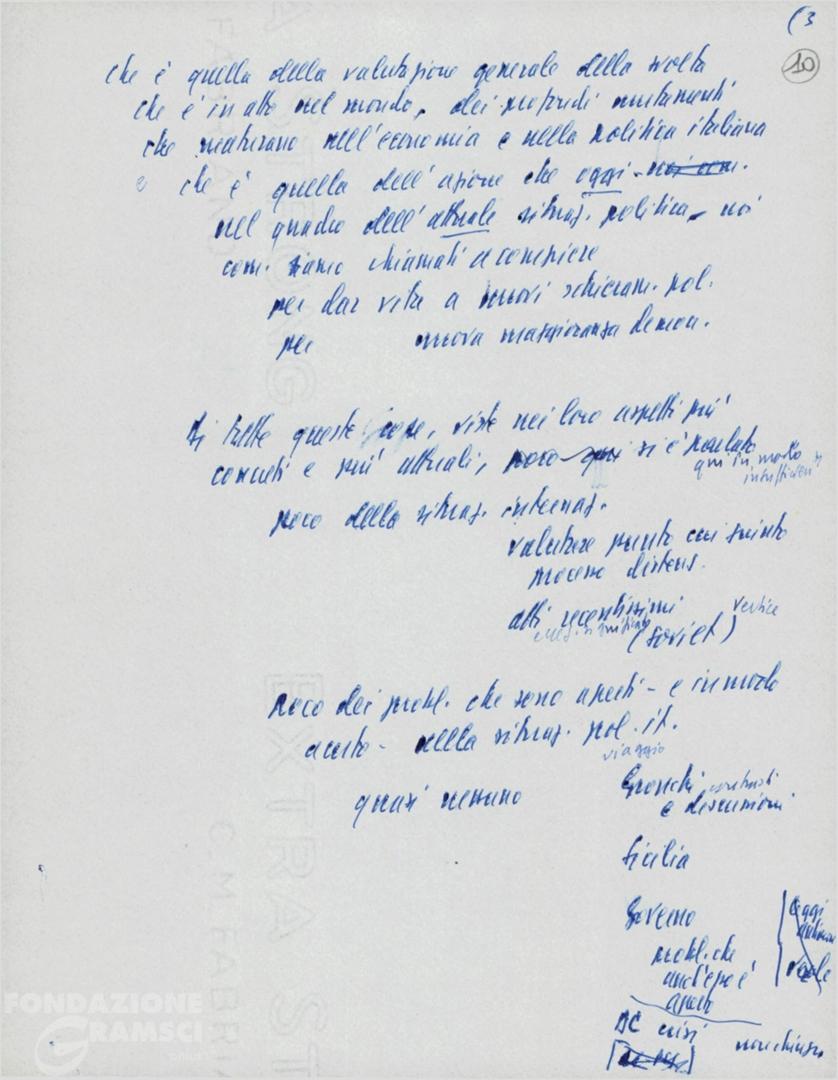 (3
10
che è quella della valutazione generale della svolta
che è in atto nel mondo, dei profondi mutamenti
che maturano nell'economia e nella politica italiana
e che è quella dell'azione che oggi - noi com.
nel quadro dell'attuale situaz. politica, noi
com. siamo chiamati a compiere
per dar vita a nuovi schieram. pol.
per nuova maggioranza democr.
Di tutte queste cose, viste nei loro aspetti più
concreti e più attuali, poco qui si è parlato
qui in modo
insufficien
poco della situaz. internaz.
valutare punto cui giunto
processo distens.
atti recentissimi
vertice
(soviet)
poco dei probl. che sono aperti - e in modo
acuto - nella situaz. pol. it.
viaggio
Gronchi contrasti
e discussioni
quasi nessuno
Sicilia
Governo
probl. che
anch'esso è
aperto
oggi
DC crisi
non chiusa
FONDAZIONE
GRAMSCI
EXTRA ST
C. M. FABRI